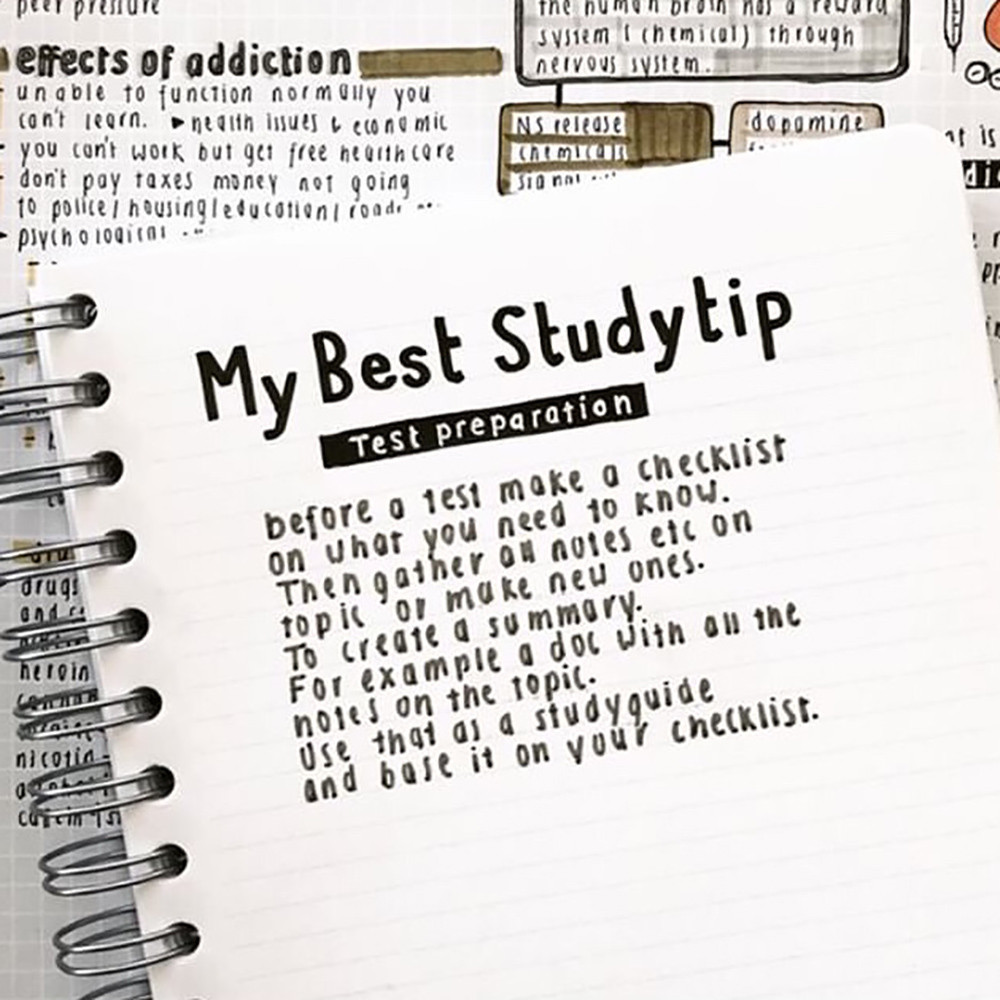 peer pressure
effects of addiction
unable to function normally you
can't learn. ▸health issues & economic
you can't work but get free healthcare
don't pay taxes money not going
to police/housing/education/roads
psychological
the human brain has a reward
system (chemical) through
nervous system.
NS release
chemicals
signal
dopamine
My Best Studytip
Test preparation
before a test make a checklist
on what you need to know.
Then gather all notes etc on
topic or make new ones.
To create a summary.
For example a doc with all the
notes on the topic.
Use that as a studyguide
and base it on your checklist.
drugs
heroin
nicotin